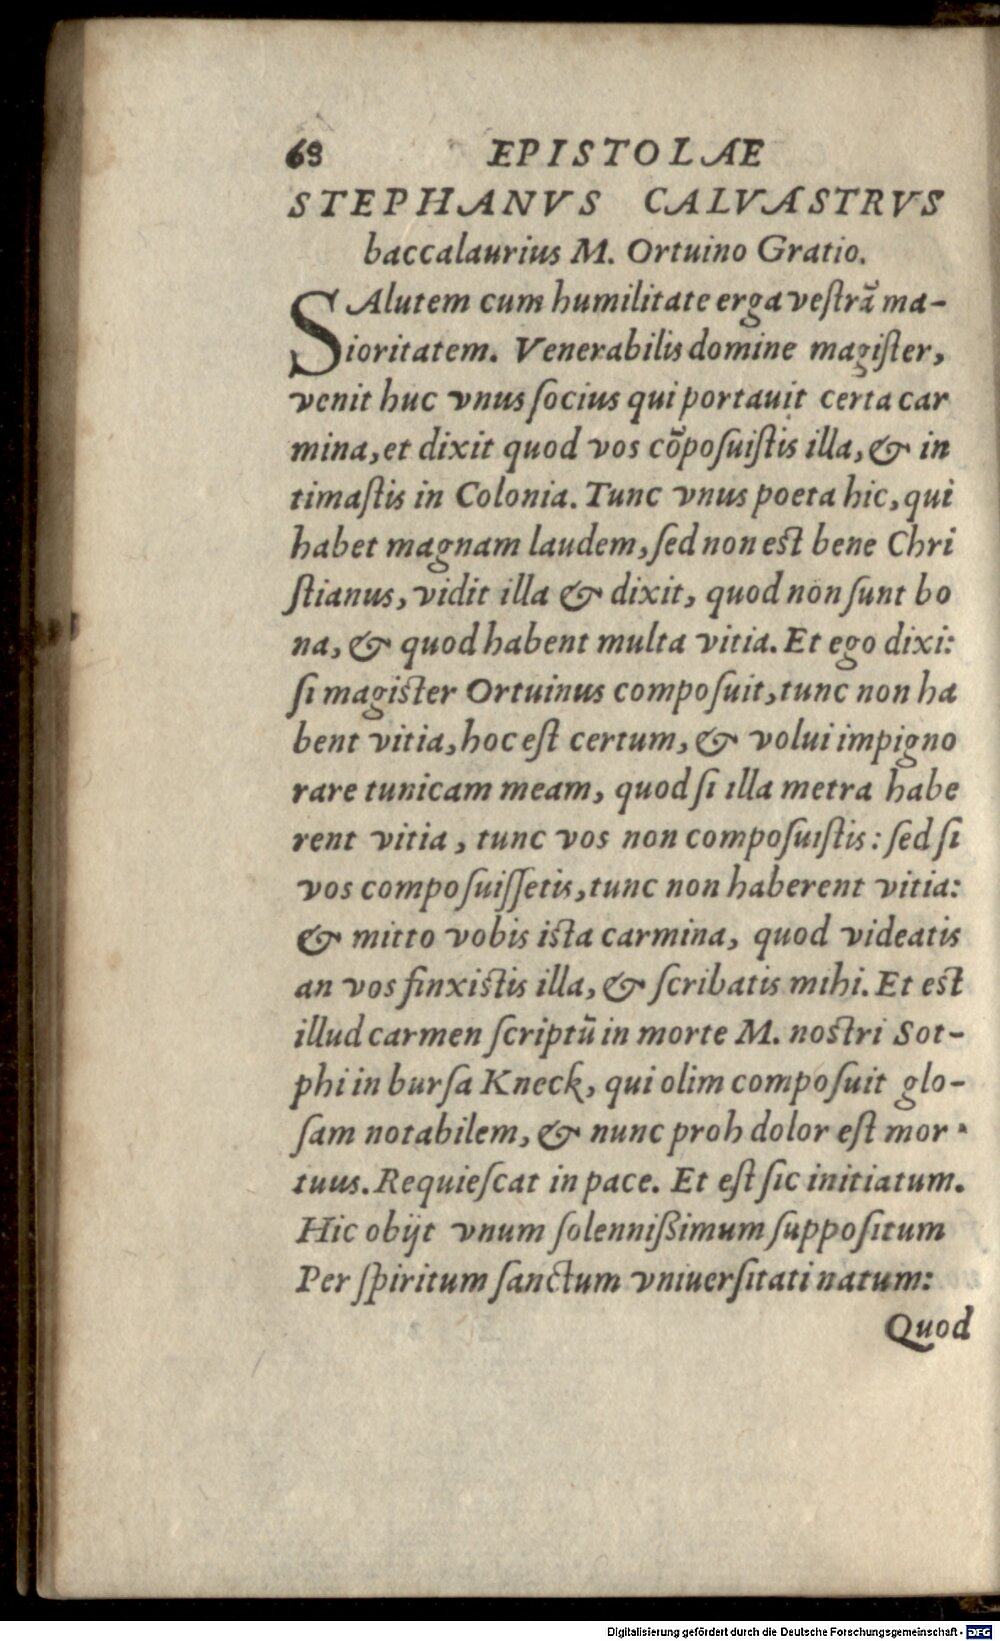 68 EPISTOLAE
STEPHANVS CALVASTRVS
baccalaurius M. Ortuino Gratio.
SAlutem cum humilitate erga veſtrã ma-
ioritatem. Venerabilis domine magiſter,
venit huc vnus ſocius qui portauit certa car
mina, et dixit quod vos cõpoſuiſtis illa, & in
timaſtis in Colonia. Tunc vnus poeta hic, qui
habet magnam laudem, ſed non est bene Chri
ſtianus, vidit illa & dixit, quod non ſunt bo
na, & quod habent multa vitia. Et ego dixi:
ſi magister Ortuinus compoſuit, tunc non ha
bent vitia, hoc eſt certum, & volui impigno
rare tunicam meam, quod ſi illa metra habe
rent vitia, tunc vos non compoſuiſtis: ſed ſi
vos compoſuiſſetis, tunc non haberent vitia:
& mitto vobis ista carmina, quod videatis
an vos finxistis illa, & ſcribatis mihi. Et est
illud carmen ſcriptũ in morte M. nostri Sot-
phi in burſa Kneck, qui olim compoſuit glo-
ſam notabilem, & nunc proh dolor eſt mor-
tuus. Requieſcat in pace. Et eſt ſic initiatum.
Hic obijt vnum ſolennißimum ſuppoſitum
Per ſpiritum ſanctum vniuerſitati natum:
Quod
Digitalisierung gefördert durch die Deutsche Forschungsgemeinschaft - DFG